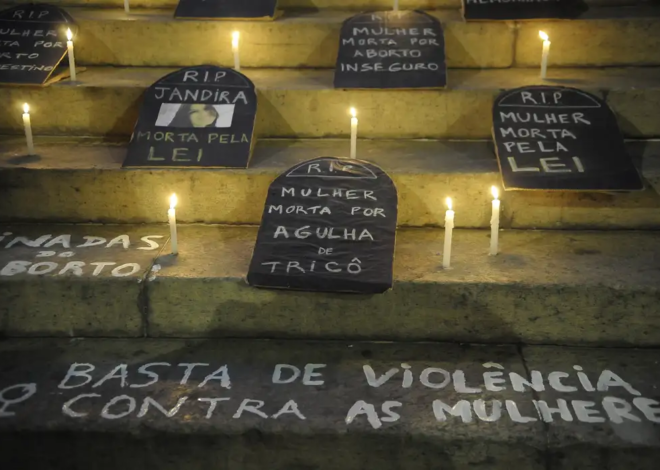 MULHER
MORTA POR
RIP
MULHER
MORTA POR
ABORTO
INSEGURO
RIP
JANDIRA
MORTA PELA
LEI
RIP
MULHER
MORTA
PELA
LEI
RIP
MULHER
MORTA POR
AGULHA
DE
TRICÔ
INADAS
DO
BORTO!
BASTA DE VIOLÊNCIA
CONTRA AS MULHERE